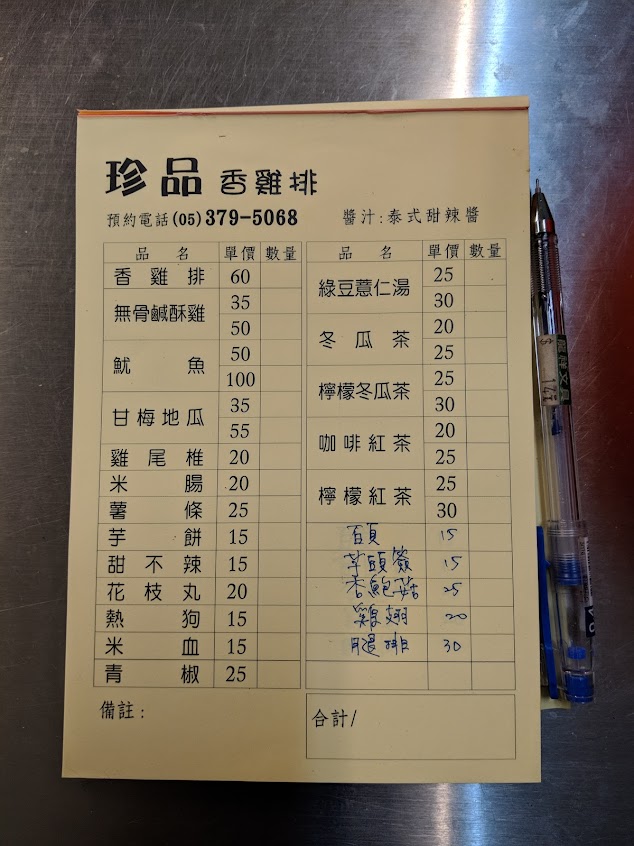 珍品 香雞排
預約電話(05)379-5068 醬汁:泰式甜辣醬
品名 單價 數量
香雞排 60
無骨鹹酥雞 35
50
魷魚 50
100
甘梅地瓜 35
55
雞尾椎 20
米腸 20
薯條 25
芋餅 15
甜不辣 15
花枝丸 20
熱狗 15
米血 15
青椒 25
備註:
品名 單價 數量
綠豆薏仁湯 25
30
冬瓜茶 20
25
檸檬冬瓜茶 25
30
咖啡紅茶 20
25
檸檬紅茶 25
30
百頁 15
芋頭簽 15
杏鮑菇 25
雞翅 20
腿排 30
合計/